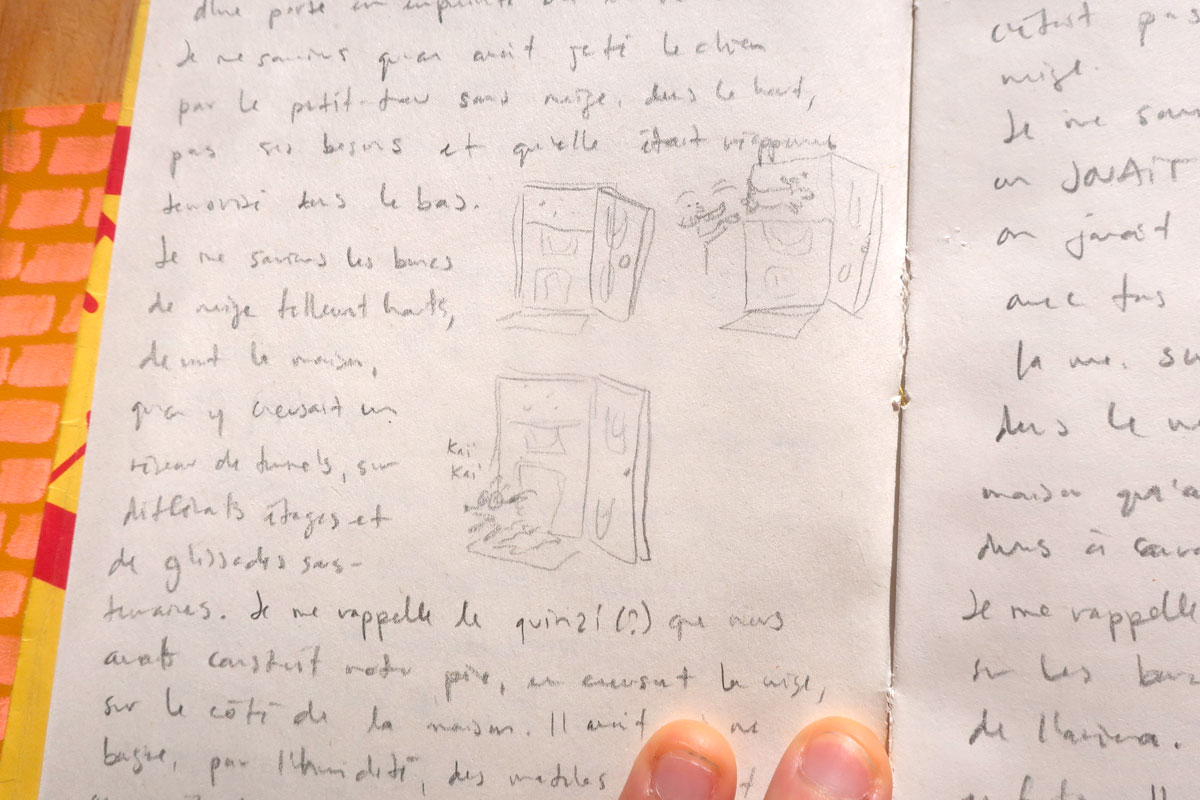 d'une porte en
Je me souviens qu'on avait jeté le chien
par le petit-trou sans neige, dans le haut,
pas ses besoins et qu'elle était réapparue
terrorisé dans le bas.
Je me souviens les bancs
de neige tellement hauts,
devant la maison,
qu'on y creusait un
réseau de tunnels, sur
différents étages et
de glissades sous-
terraines. Je me rappelle le quinzi (?) que nous
avait construit notre père, en creusant la neige,
sur le côté de la maison. Il avait
par l'humidité, des
Kaï
Kaï
c'était pas
neige.
Je me sou
on JOUAIT
on jouait
avec tous
la rue. su
dans le
maison qu'a
dans à
Je me rappelle
sur les ban
de